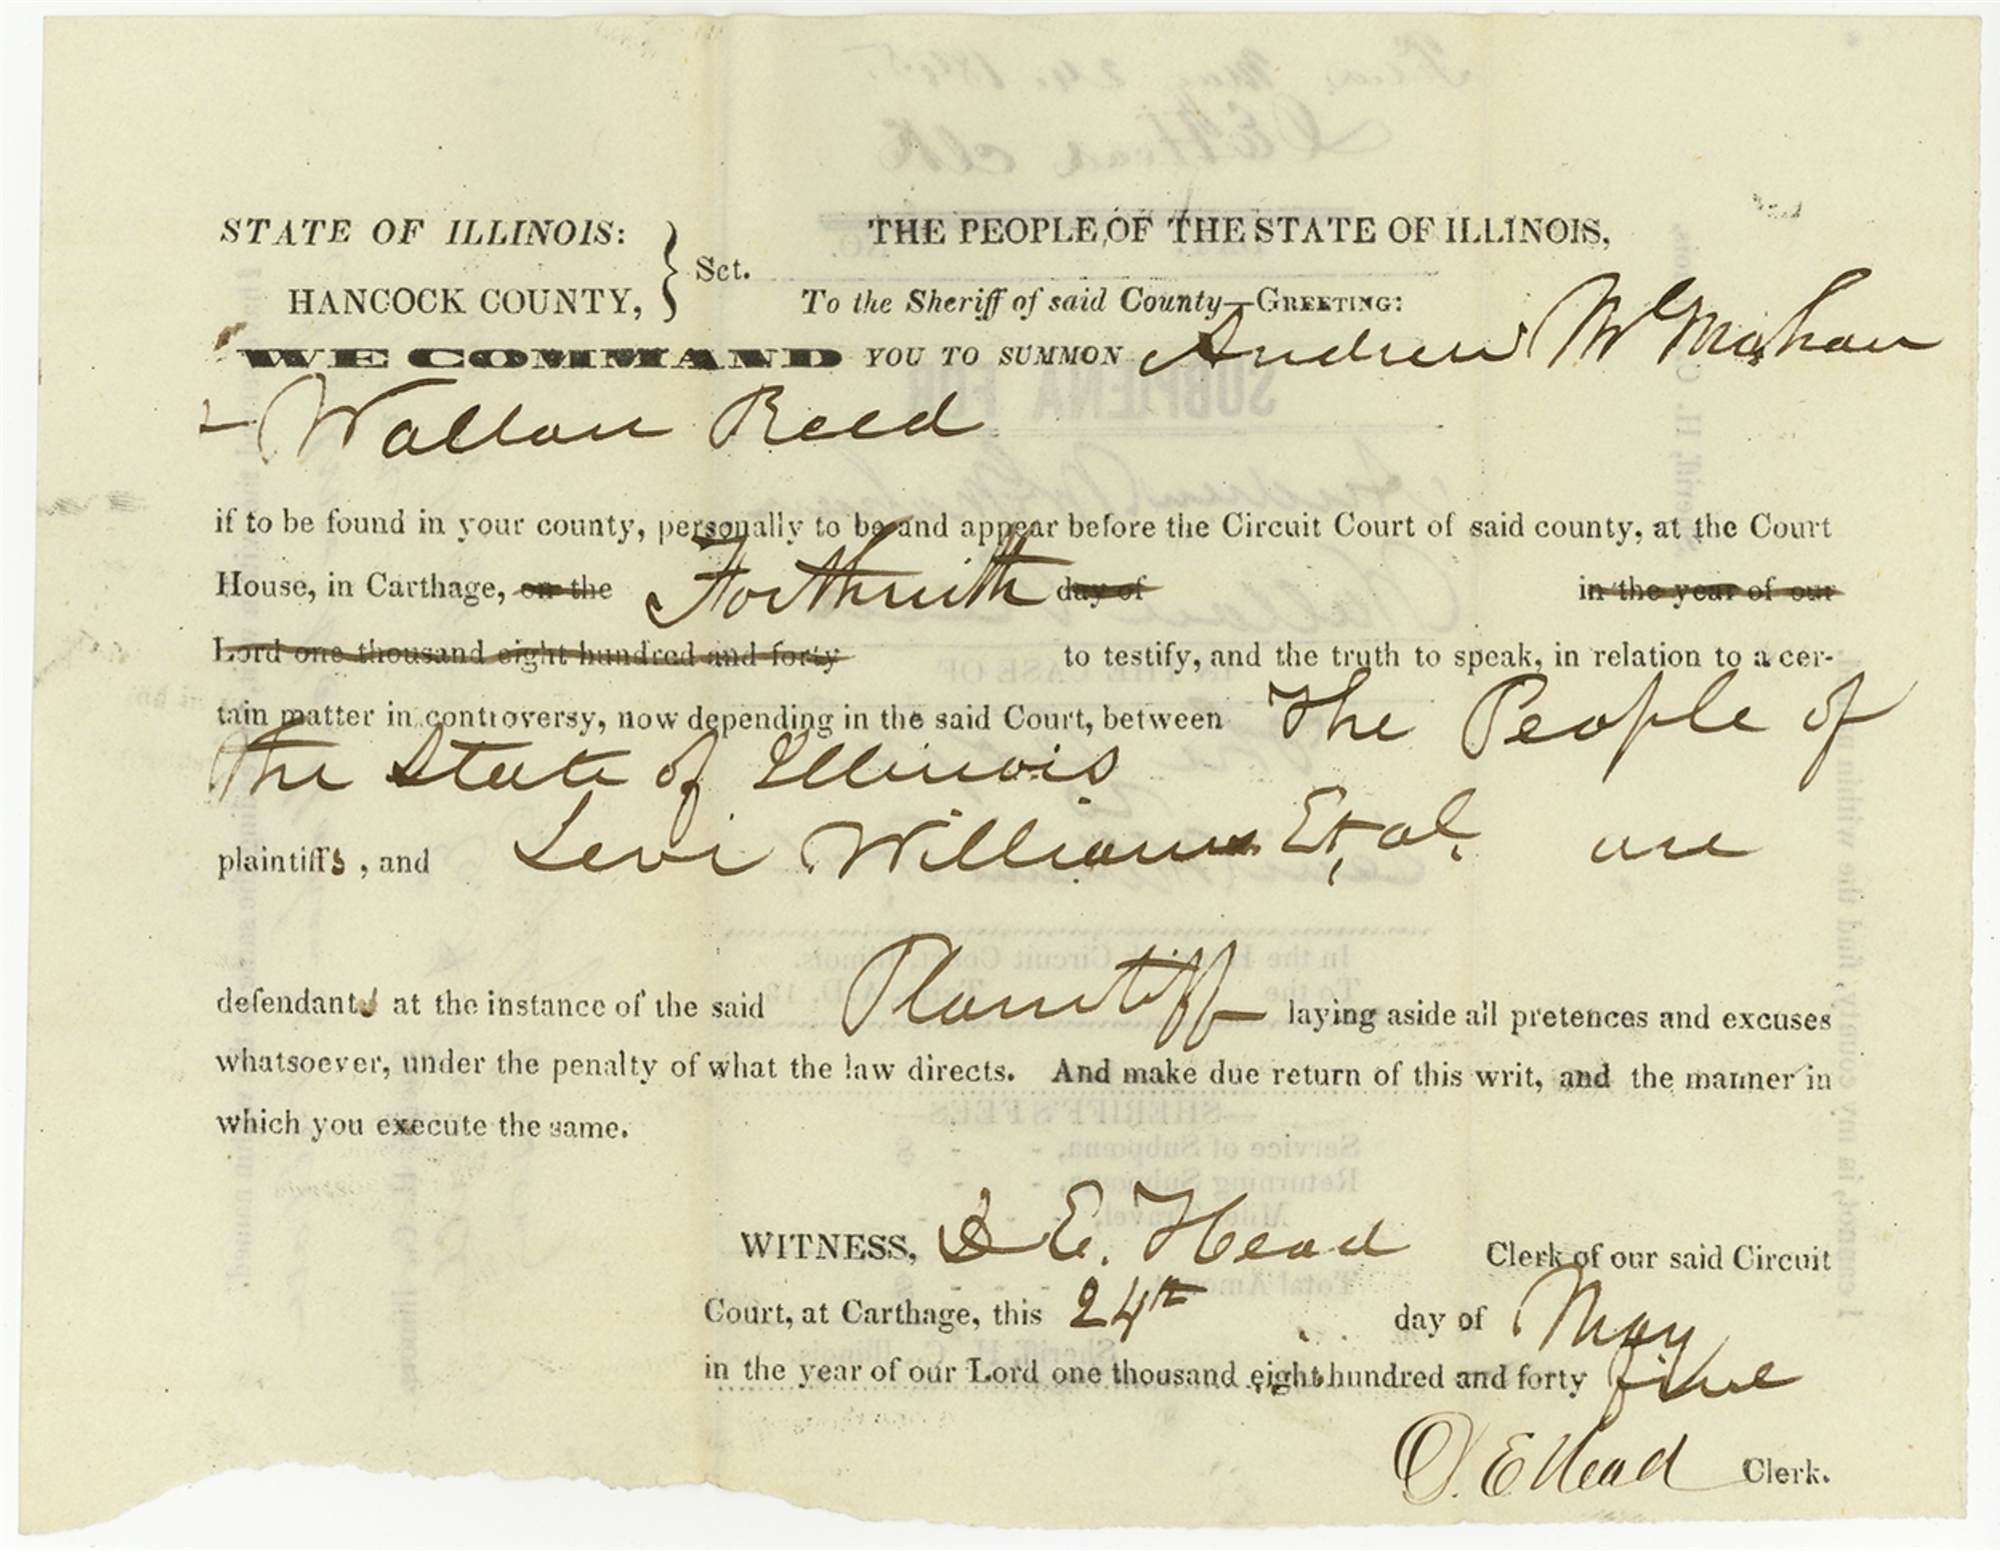 STATE OF ILLINOIS:
HANCOCK COUNTY,
Sct.
THE PEOPLE OF THE STATE OF ILLINOIS,
To the Sheriff of said County—GREETING:
WE COMMAND YOU TO SUMMON Andrew McMahan
& Wallan Reed
if to be found in your county, personally to be and appear before the Circuit Court of said county, at the Court
House, in Carthage, on the Forthwith day of in the year of our
Lord one thousand eight hundred and forty to testify, and the truth to speak, in relation to a cer-
tain matter in controversy, now depending in the said Court, between The People of
the State of Illinois
plaintiffs, and Levi Williams Et, al. are
defendants at the instance of the said Plaintiff laying aside all pretences and excuses
whatsoever, under the penalty of what the law directs. And make due return of this writ, and the manner in
which you execute the same.
WITNESS, D E. Head Clerk of our said Circuit
Court, at Carthage, this 24th day of May
in the year of our Lord one thousand eight hundred and forty five
D. E Head Clerk.